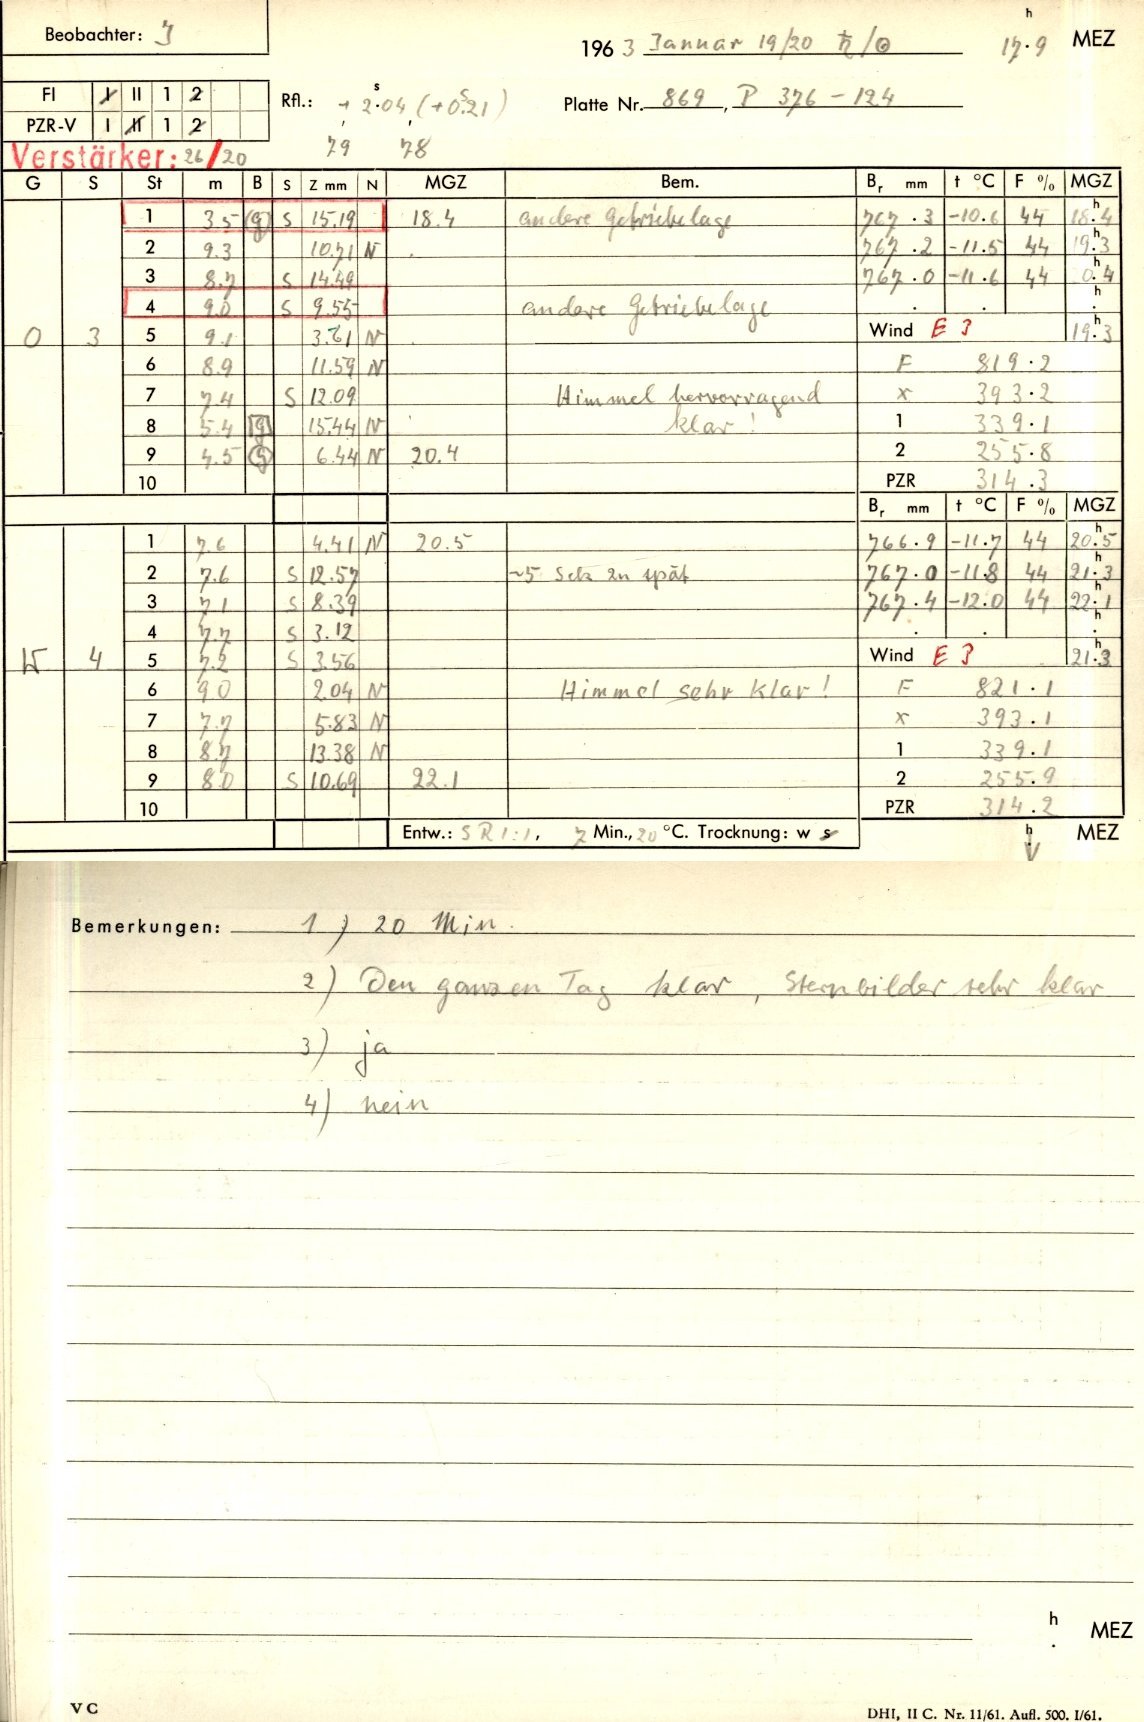 Beobachter: J
1963 Januar 19/20 ♄/⊙ 17.9 h MEZ
FI I II 1 2
PZR-V I II 1 2
Rfl.: + 2.04 s (+0.21 s)
79 78
Platte Nr. 869, P 376-124
Verstärker: 26/20
G S St m B S Z mm N MGZ Bem. Br mm t °C F % MGZ
1 3.5 (g) S 15.19 18.4 andere Getriebelage 767.3 -10.6 44 18.4 h
2 9.3 10.71 N 767.2 -11.5 44 19.3 h
3 8.7 S 14.49 767.0 -11.6 44 0.4 h
4 9.0 S 9.55 andere Getriebelage . . h
0 3 5 9.1 3.61 N Wind E 3 19.3 h
6 8.9 11.59 N F 819.2
7 7.4 S 12.09 Himmel hervorragend x 393.2
8 5.4 g 15.44 N klar! 1 339.1
9 4.5 6.44 N 20.4 2 255.8
10 PZR 314.3
Br mm t °C F % MGZ
1 7.6 4.41 N 20.5 766.9 -11.7 44 20.5 h
2 7.6 S 12.57 ~5 Sek zu spät 767.0 -11.8 44 21.3 h
3 7.1 S 8.39 767.4 -12.0 44 22.1 h
4 7.7 S 3.12 . . h
4 5 7.2 S 3.56 Wind E 3 21.3 h
6 9.0 2.04 N Himmel sehr klar! F 821.1
7 7.7 5.83 N x 393.1
8 8.7 13.38 N 1 339.1
9 8.0 S 10.69 22.1 2 255.9
10 PZR 314.2
Entw.: SR 1:1, 7 Min., 20 °C. Trocknung: w s h MEZ
Bemerkungen: 1) 20 Min.
2) Den ganzen Tag klar, Sternbilder sehr klar
3) ja
4) nein
h . MEZ
V C
DHI, II C. Nr. 11/61. Aufl. 500. I/61.